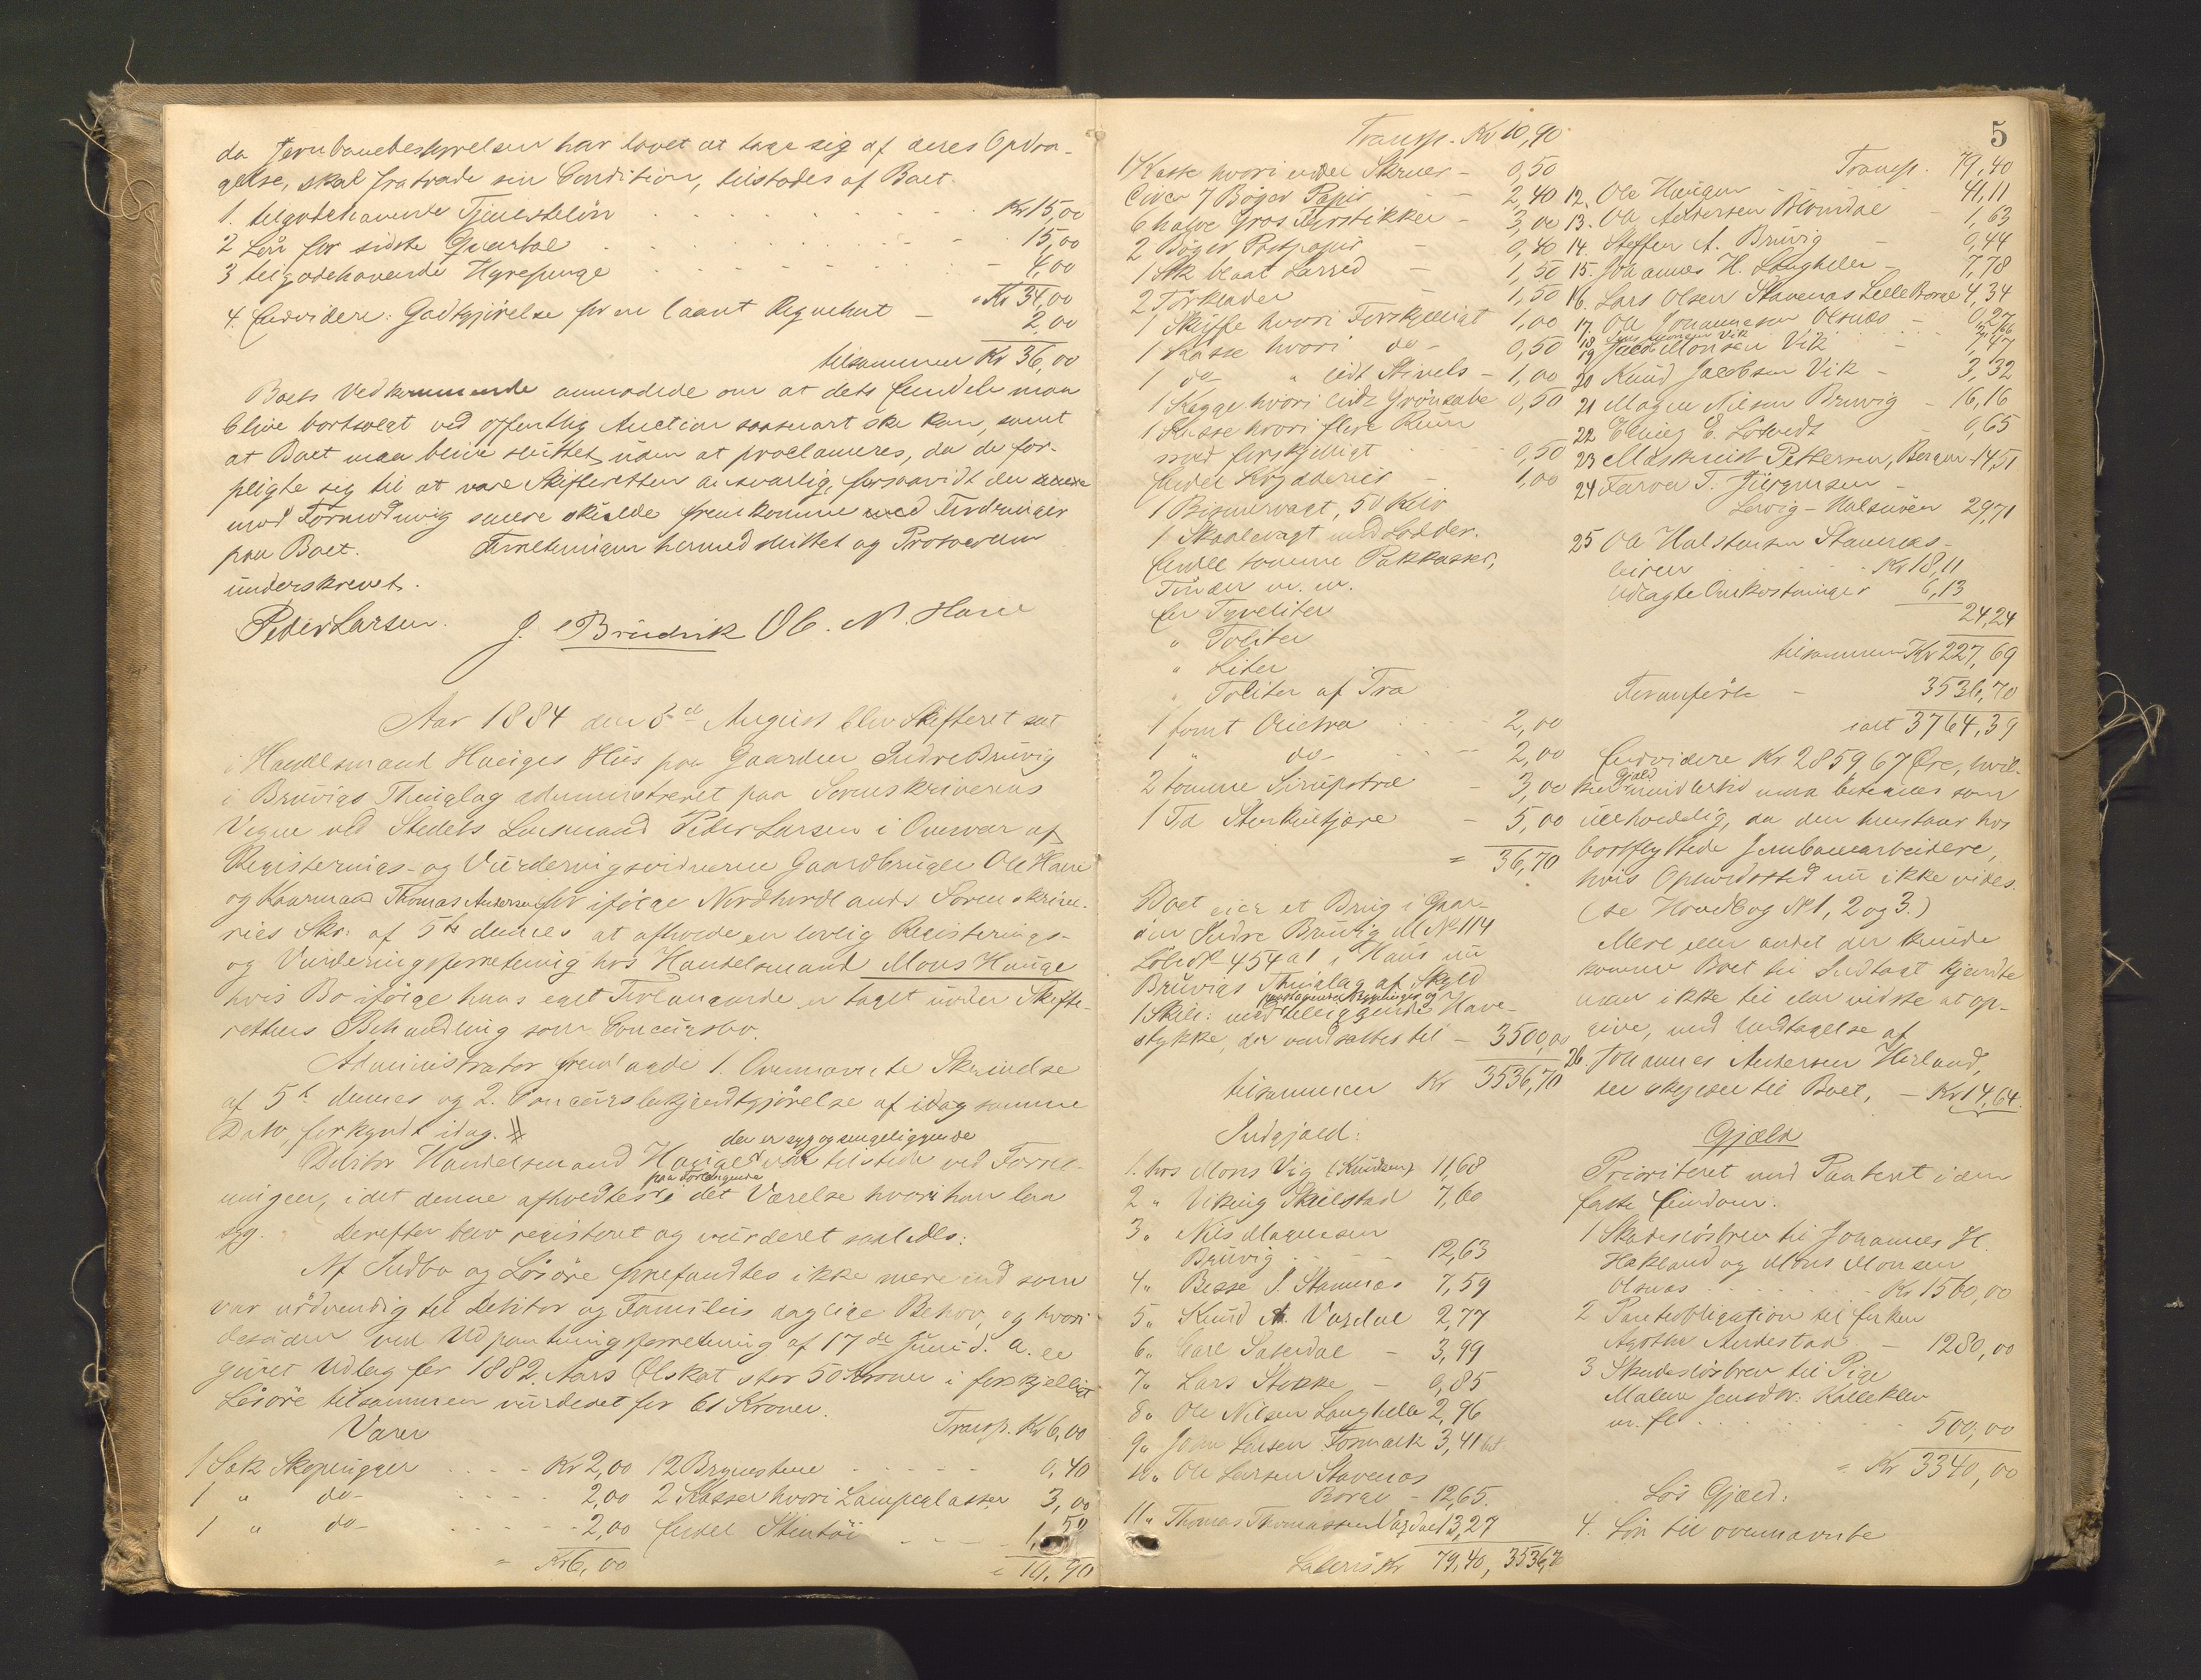 da Jernbanebestyrelsen har lovet at tage sig af deres Opdra-
gelse, skal fratræde sin Condition, tilstodes af Boet.
1. tilgodehavende Tjenestelön Kr 15,00
2 Lön for sidste Quartal 15,00
3 tilgodehavende Hyrepenge 4,00
= Kr 34,00
4. Endvidere: Godtgjörelse for en laant Regnehut – 2,00
tilsammen Kr 36,00
Boets Vedkommende anmodede om at dets Eiendele maa
blive bortsolgt ved offentlig Auction saasnart ske kan, samt
at Boet maa blive sluttet uden at proclameres, da de for-
pligte sig til at være Skifteretten ansvarlig, forsaavidt der
mod Formodning senere skulde fremkomme med Fordringer
paa Boet. Forretningen hermed sluttet og Protocollen
underskrevet.
Peder Larsen. J. Brudvik Ol. N. Hane
Aar 1884 den 8de August blev Skifteret sat
i Handelsmand Hauges Hus paa Gaarden Indre Bruvig
i Bruvigs Thinglag administreret paa Sorenskriverens
Vegne ved Stedets Lensmand Peder Larsen i Overvær af
Registerings- og Vurderingsvidnerne Gaardbruger Ole Hane
og Kaarmand Thomas Andersen for ifölge Nordhordlands Sorenskrive-
ries Skr. af 5te dennes at afholde en lovlig Registerings-
og Vurderingsforretning hos Handelsmand Mons Hauge
hvis Bo ifölge hans eget Forlangende er taget under Skifte-
rettens Behandling som Concursbo.
Administrator fremlagde 1. Ovennævnte Skrivelse
af 5te dennes og 2. Concursbekjendtgjörelse af idag samme
Dato, forkyndt idag.
der er syg og sengeliggende
Debitor Handelsmand Hauge var tilstede ved Forret-
paa Forlangende
ningen, idet denne afholdtes i det Værelse hvori han laa
syg. Derefter blev registeret og vurderet saaledes:
Af Indbo og Lösöre forefandtes ikke mere end som
var nödvendig til Debitor og Familiis daglige Behov, og hvori
desuden ved Udpantningsforretning af 17de Juni d. a. er
givet Udlæg for 1882 Aars Ölskat stor 50 Kroner i forskjelligt
Lösöre tilsammen vurderet for 61 Kroner.
Varer Transp. Kr 6,00
1 Sæk Skoplugger Kr 2,00 12 Brynestene 0,40
1 " do- 2,00 2 Kasser hvori Lampeglasser 3,00
1 " do- 2,00 Endel Stentöi 1,50
= Kr 6,00 = 10,90
5
Transp. Kr 10,90
1 Kasse hvori endel Skruer – 0,50
Circa 7 Böger Papir – 2,40
6 halve Gros Fyrstikker – 3,00
2 Böger Postpapir – 0,40
1 Stk blaat Lærred – 1,50
2 Törklæder 1,50
1 Skuffe hvori Forskjelligt 1,00
1 Kasse hvori do- 0,50
1 do " lidt Stivels – 1,00
1 Kagge hvori lidt Grönsæbe 0,50
1 Kasse hvori flere Rum
med forskjelligt 0,50
Endel Krydderier – 1,00
1 Bismervægt, 50 Kilo
1 Skaalevægt med Lodder.
Endel tomme Pakkasser,
Tönder m. m.
En Tyveliter
" Toliter
" Liter
" Toliter af Træ
1 tomt Olietræ 2,00
1 " do- 2,00
2 tomme Sirupstræ – 3,00
1 Td Stenkultjære – 5,00
= 36,70
Boet eier et Brug i Gaar-
den Indre Bruvig M. No 114
Löbe No 454 a1 i Haus nu
Bruvigs Thinglag af Skyld
paastaaende Bygninger og
1 Skill: med tilliggende Have-
stykke, der ansattes til – 3500,00
tilsammen Kr 3536,70
Indgjæld:
1. hos Mons Vig (Knudsen) 11,68
2 " Viking Skulstad 7,60
3 " Nils Magnesen
Bruvig 12,63
4 " Besse J. Stamnæs 7,59
5 " Knud A. Vaxdal 2,77
6 " Carl Saterdal – 3,99
7 " Lars Stokke – 0,85
8 " Ole Nilsen Langhelle 2,96
9 " John Larsen Fosmark 3,41
10 " Ole Larsen Stavenæs
Borge – 12,65.
11 " Thomas Thomassen Vaxdal 13,27
Lateris Kr 79,40, 3536,70
Transp. 79,40
12. Ole Haugen – 41,11
13. Ole Andersen Blomdal – 1,63
14. Steffen A. Bruvig – 0,44
15. Johannes H. Langhelle – 7,78
16. Lars Olsen Stavenæs Lille Borge 4,34
17. Ole Johannesen Olsnæs – 0,27
18 Vik 3,66
19 Monsen Vik 7,47
20 Knud Jacobsen Vik – 3,32
21 Magne Nilsen Bruvig – 16,16
22 Elling E. Lotvedt 0,65
23 Maskinist Pettersen, Bergen 14,51
24 Farver T. Jürgensen –
Lervig – Halsnöen 29,71
25 Ole Halstensen Stamnæs-
leiren Kr 18,11
Udlagte Omkostninger 6,13
24,24
tilsammen Kr 227,69
Foranförte – 3536,70
ialt 3764,39
Endvidere Kr 2859 67 Öre, hvil-
Gjæld
ken imidlertid maa betegnes som
uerholdelig, da den henstaar hos
bortflyttede Jernbanearbeidere,
hvis Opholdssted nu ikke vides.
(se Hovedbog No 1, 2 og 3.)
Mere eller andet der kunde
komme Boet til Indtægt kjendte
man ikke til eller vidste at op-
give, med Undtagelse af
26. Johannes Andersen Herland,
der skyder til Boet, – Kr 14,64.
Gjæld
Prioriteret med Panteret i den
faste Eiendom.
1 Skadeslösbrev til Johannes H.
Hakland og Mons Monsen
Olsnæs Kr 1560,00
2 Panteobligation til Enken
Agathe Andestad – 1280,00
3 Skadeslösbrev til Pige
Malene Jensdtr. Kalleklev
m. fl 500,00
= Kr 3340,00
Lös Gjæld:
4. Lön til ovennævnte